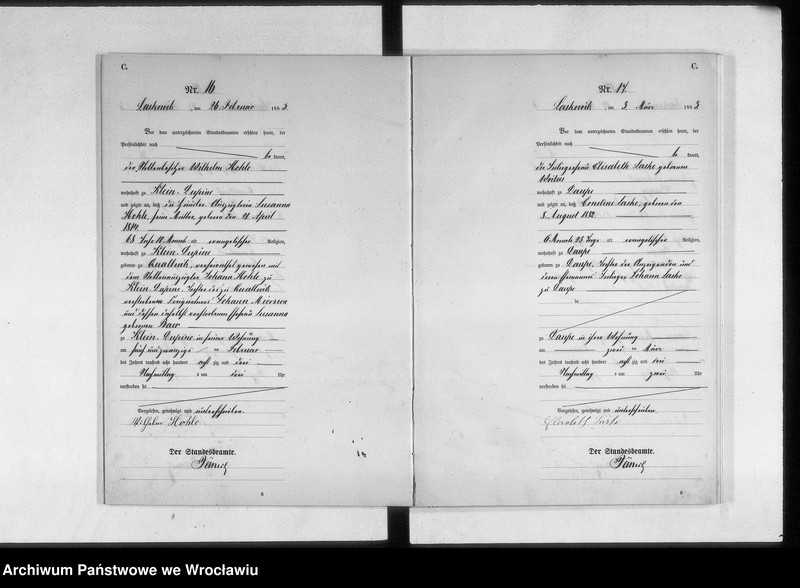 C.
Nr. 16
am 26 Februar 1883.
Vor dem unterzeichneten Standesbeamten erschien heute, der
Persönlichkeit nach
be kannt,
der Stellenbesitzer Wilhelm Hohle
wohnhaft zu Klein-Dupine
und zeigte an, daß die Susanna
Hohle, geboren den April
1814.
68 Jahre 10 Monat alt evangelischer Religion,
wohnhaft zu Klein-Dupine
geboren zu verheirathet gewesen mit
dem Johann Hohle, zu
Klein-Dupine, Tochter des zu
verstorbenen Johann
und dessen daselbst verstorbenen Ehefrau Susanna
geborenen Baer
zu Klein-Dupine in seiner Wohnung
am fünf und zwanzigsten Februar
des Jahres tausend acht hundert achtzig und drei
Nachmittag s um drei Uhr
verstorben sei
Vorgelesen, genehmigt und unterschrieben.
Wilhelm Hohle
Der Standesbeamte.
6
C.
Nr. 17
am 3 März 1883
Vor dem unterzeichneten Standesbeamten erschien heute, der
Persönlichkeit nach
be kannt,
die Elisabeth Laske geborene
wohnhaft zu Daupe
und zeigte an, daß Laske, geboren den
8. August 1882
6 Monat 25 Tage alt evangelischer Religion,
wohnhaft zu Daupe
geboren zu Daupe, Tochter der Anzeigenden und
deren Ehemannes Johann Laske
zu Daupe
zu Daupe in ihrer Wohnung
am zwei ten März
des Jahres tausend acht hundert achtzig und drei
Nachmittag s um zwei Uhr
verstorben sei
Vorgelesen, genehmigt und unterschrieben.
Elisabeth Laske
Der Standesbeamte.
6
Archiwum Państwowe we Wrocławiu